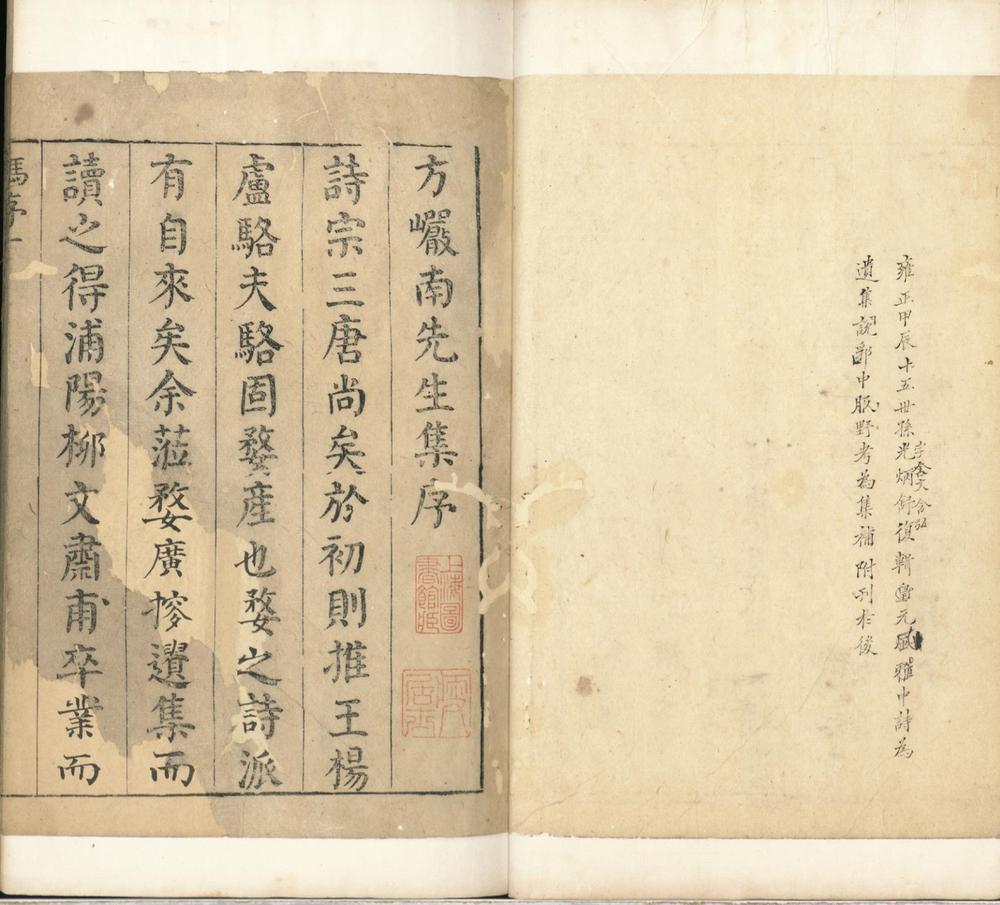 雍正甲辰十五世孫光炳舒復輯宋元風雅中詩為
字含大含弘
遺集說郛中臥野考為集補附刊於後
方巖南先生集序
上海圖書館藏
詩宗三唐尚矣於初則推王楊
盧駱夫駱固婺產也婺之詩派
有自來矣余蒞婺廣搜遺集而
讀之得浦陽柳文肅甫卒業而
馮序一